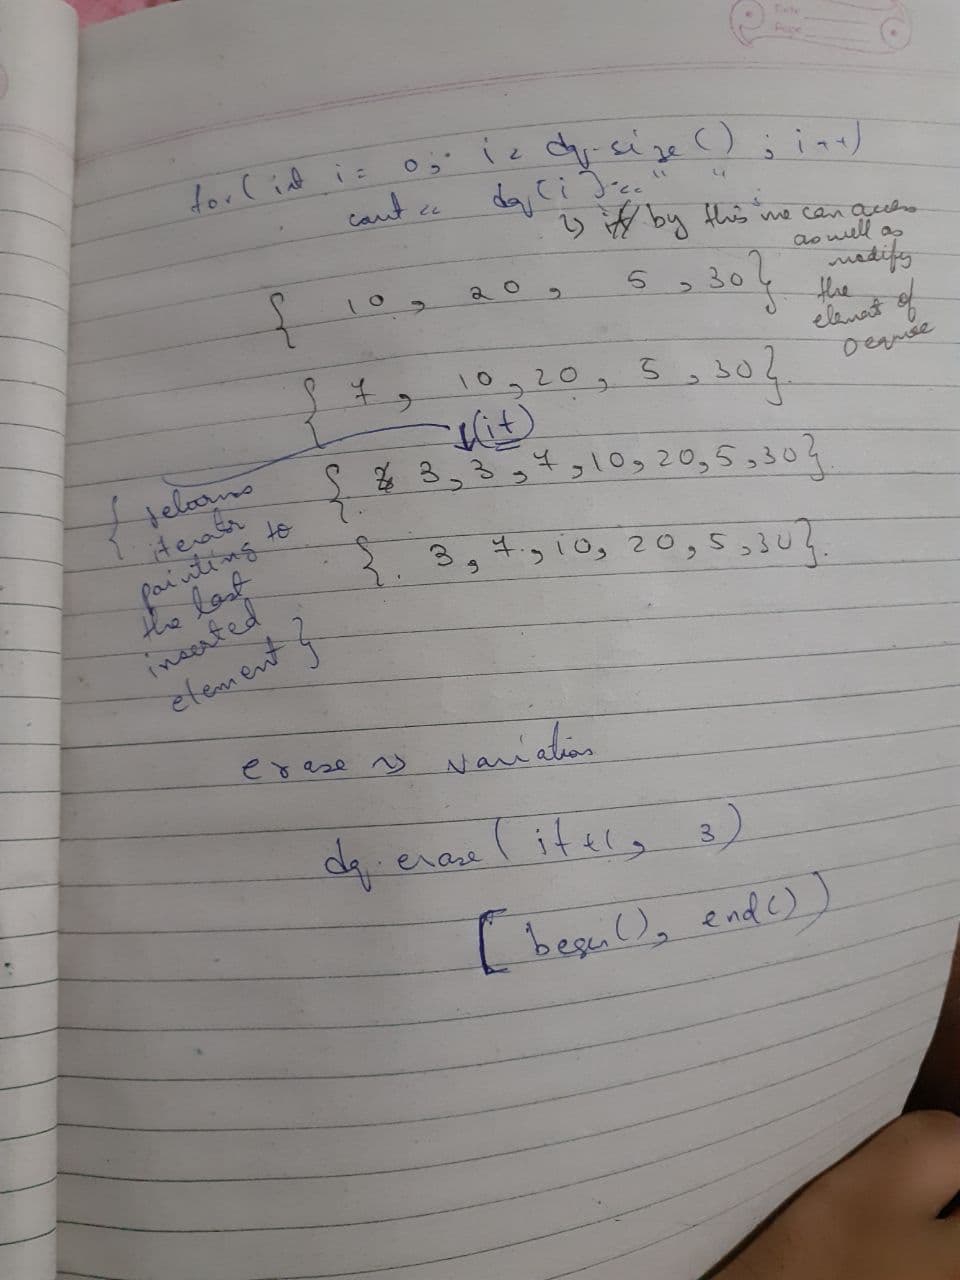 Date
Page
for(int i= 0; i< dq.size() ; i++)
cout << dq[i]<<" "
↳ by this we can access
as well as
modify
the
element of
{ 10, 20, 5, 30}
{ 7, 10, 20, 5, 30}
(it)
{ 3, 3, 7, 10, 20, 5, 30}
{ returns
iterator
pointing to
the last
inserted
element }
{ 3, 7, 10, 20, 5, 30}.
erase → variation
dq.erase( it+1, 3)
[ begin(), end())